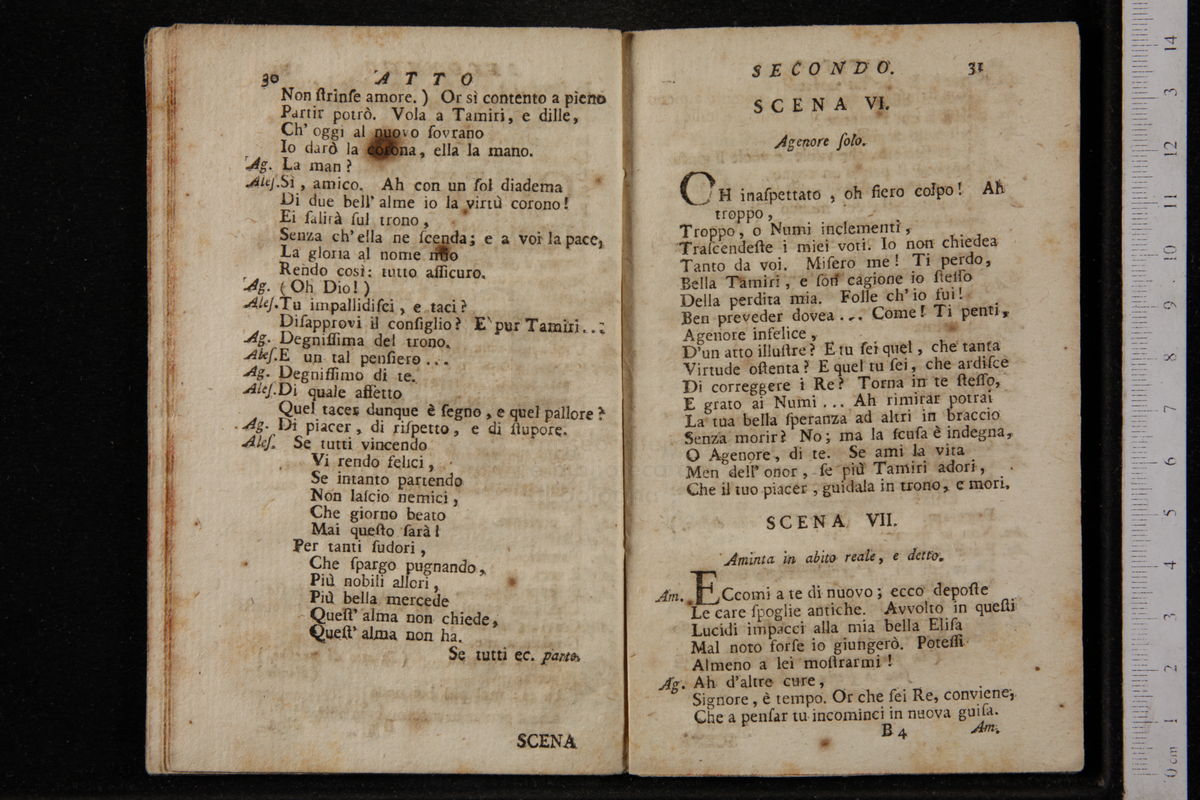 30 ATTO
Non ſtrinſe amore.) Or sì contento a pieno
Partir potrò. Vola a Tamiri, e dille,
Ch' oggi al nuovo ſovrano
Io darò la corona, ella la mano.
Ag. La man?
Aleſ. Sì, amico. Ah con un ſol diadema
Di due bell' alme io la virtù corono!
Ei ſalirà ſul trono,
Senza ch' ella ne ſcenda; e a voi la pace,
La gloria al nome mio
Rendo così: tutto aſſicuro.
Ag. (Oh Dio!)
Aleſ. Tu impallidiſci, e taci?
Diſapprovi il conſiglio? E' pur Tamiri...
Ag. Degniſſima del trono.
Aleſ. E un tal penſiero...
Ag. Degniſſimo di te.
Aleſ. Di quale affetto
Quel tacer dunque è ſegno, e quel pallore?
Ag. Di piacer, di riſpetto, e di ſtupore.
Aleſ. Se tutti vincendo
Vi rendo felici,
Se intanto partendo
Non laſcio nemici,
Che giorno beato
Mai queſto ſarà!
Per tanti ſudori,
Che ſpargo pugnando,
Più nobili allori,
Più bella mercede
Queſt' alma non chiede,
Queſt' alma non ha.
Se tutti ec. parte.
SCENA
SECONDO. 31
SCENA VI.
Agenore ſolo.
OH inaſpettato, oh fiero colpo! Ah
troppo,
Troppo, o Numi inclementi,
Traſcendeſte i miei voti. Io non chiedea
Tanto da voi. Miſero me! Ti perdo,
Bella Tamiri, e ſon cagione io ſteſſo
Della perdita mia. Folle ch' io fui!
Ben preveder dovea... Come! Ti penti,
Agenore infelice,
D'un atto illuſtre? E tu ſei quel, che tanta
Virtude oſtenta? E quel tu ſei, che ardiſce
Di correggere i Re? Torna in te ſteſſo,
E grato ai Numi... Ah rimirar potrai
La tua bella ſperanza ad altri in braccio
Senza morir? No; ma la ſcuſa è indegna,
O Agenore, di te. Se ami la vita
Men dell' onor, ſe più Tamiri adori,
Che il tuo piacer, guidala in trono, e mori.
SCENA VII.
Aminta in abito reale, e detto.
Am. ECcomi a te di nuovo; ecco depoſte
Le care ſpoglie antiche. Avvolto in queſti
Lucidi impacci alla mia bella Eliſa
Mal noto forſe io giungerò. Poteſſi
Almeno a lei moſtrarmi!
Ag. Ah d'altre cure,
Signore, è tempo. Or che ſei Re, conviene,
Che a penſar tu incominci in nuova guiſa.
B 4 Am.
0 cm 1 2 3 4 5 6 7 8 9 10 11 12 3 14